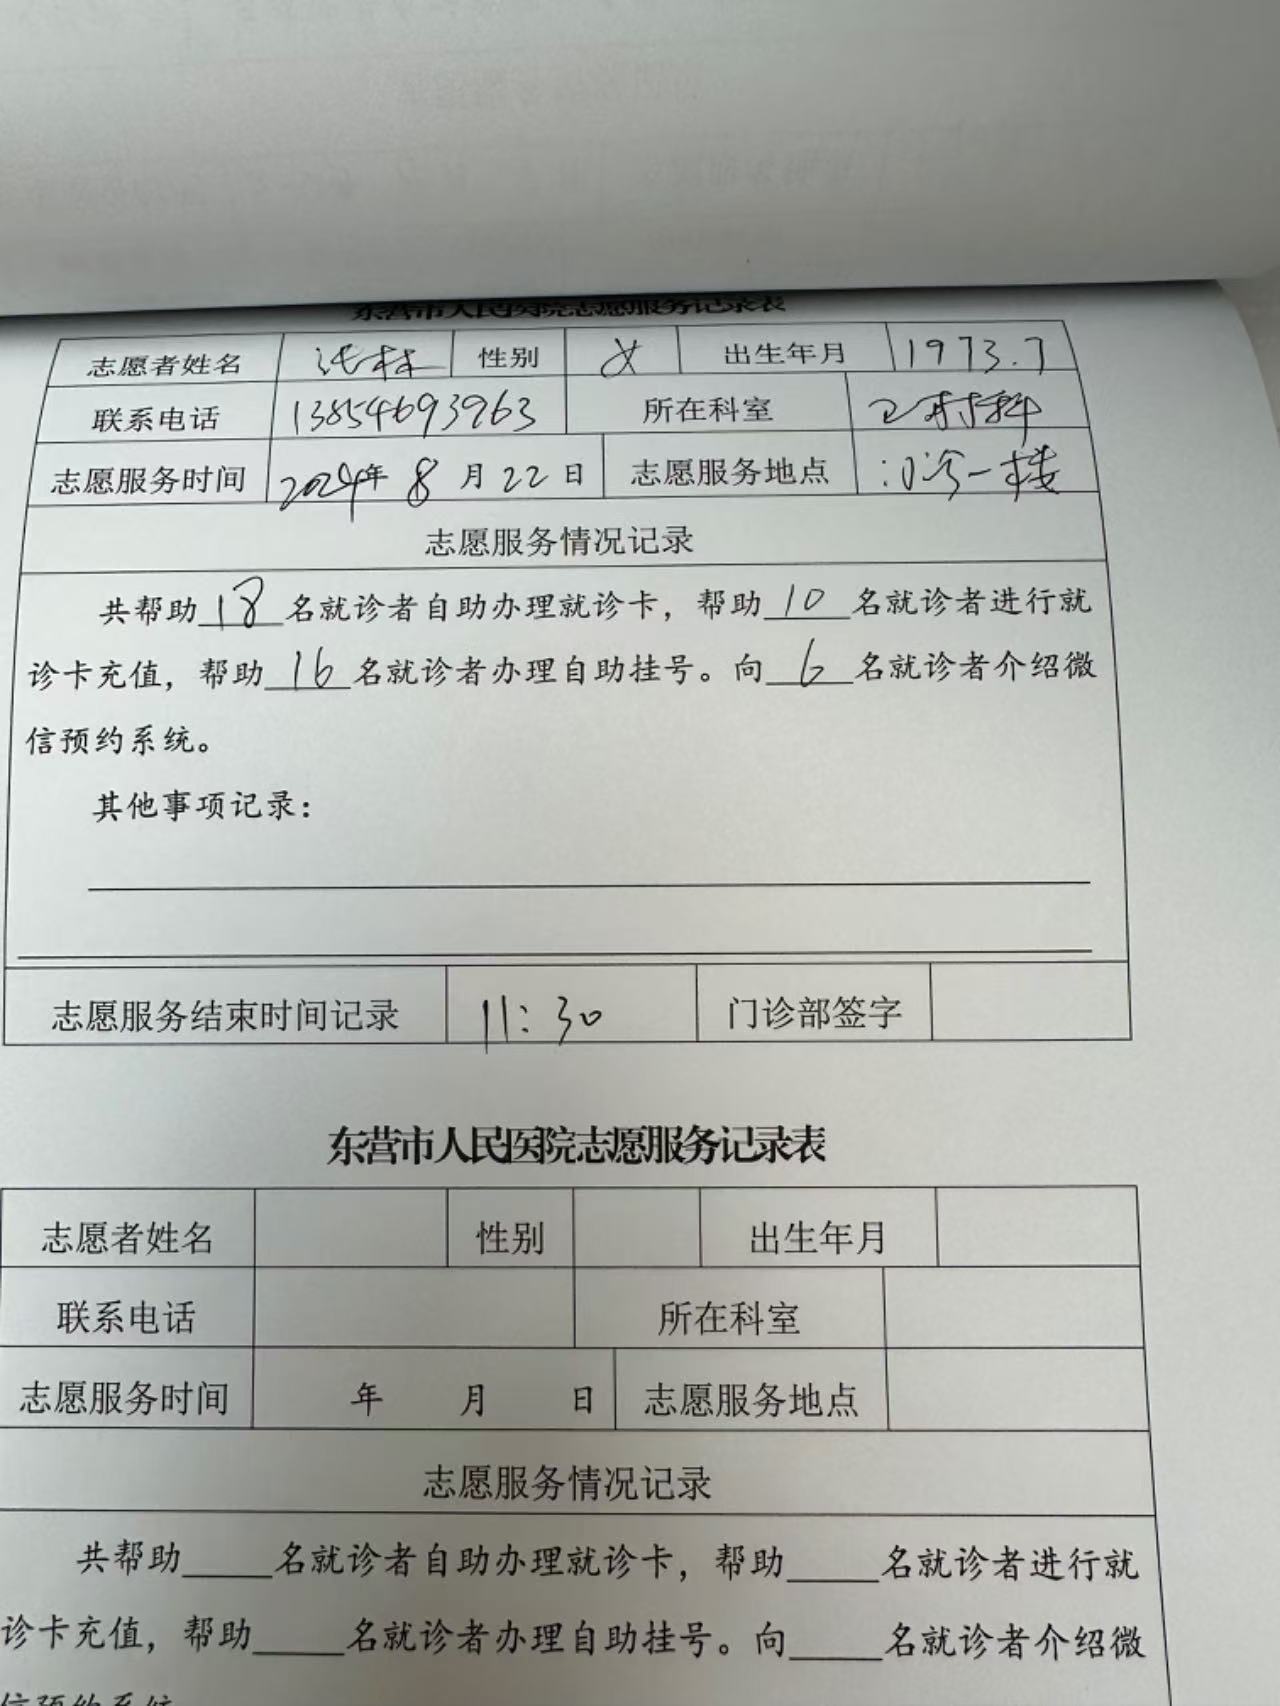 东营市人民医院志愿服务记录表
志愿者姓名 性别 女 出生年月 1973.7
联系电话 13854693963 所在科室
志愿服务时间 2024年 8 月 22 日 志愿服务地点 门诊一楼
志愿服务情况记录
共帮助 18 名就诊者自助办理就诊卡，帮助 10 名就诊者进行就
诊卡充值，帮助 16 名就诊者办理自助挂号。向 6 名就诊者介绍微
信预约系统。
其他事项记录：
志愿服务结束时间记录 11:30 门诊部签字
东营市人民医院志愿服务记录表
志愿者姓名 性别 出生年月
联系电话 所在科室
志愿服务时间 年 月 日 志愿服务地点
志愿服务情况记录
共帮助____名就诊者自助办理就诊卡，帮助____名就诊者进行就
诊卡充值，帮助____名就诊者办理自助挂号。向____名就诊者介绍微
信预约系统